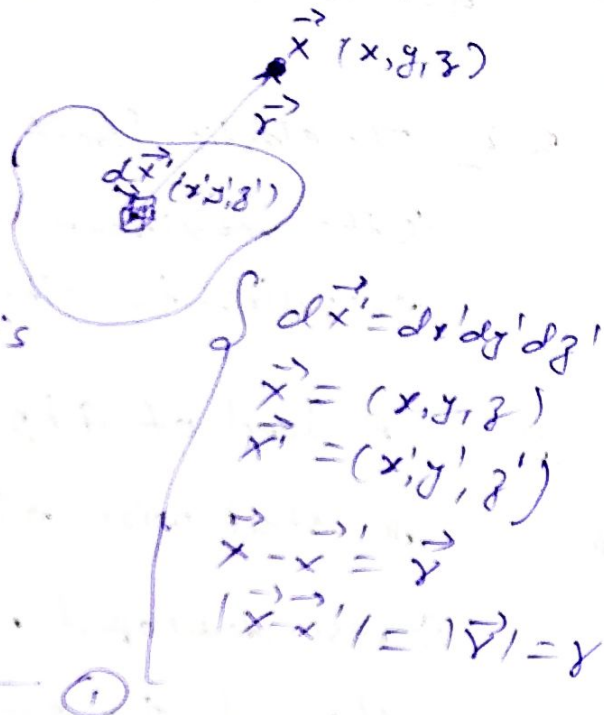 x⃗ (x,y,z)
r⃗
dx⃗' (x'y',z')
's
dx⃗' = dx'dy'dz'
x⃗ = (x,y,z)
x⃗' = (x',y',z')
x⃗ - x⃗' = r⃗
|x⃗-x⃗'| = |r⃗| = r
①